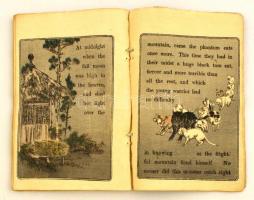 At midnight
when the
full moon
was high in
the heavens,
and shed
her light
over the
mountain, came the phantom cats
once more. This time they had in
their midst a huge black tom cat,
fiercer and more terrible than
all the rest, and which
the young warrior had
difficulty
in knowing as the fright-
ful mountain fiend himself. No
sooner did this monster catch sight